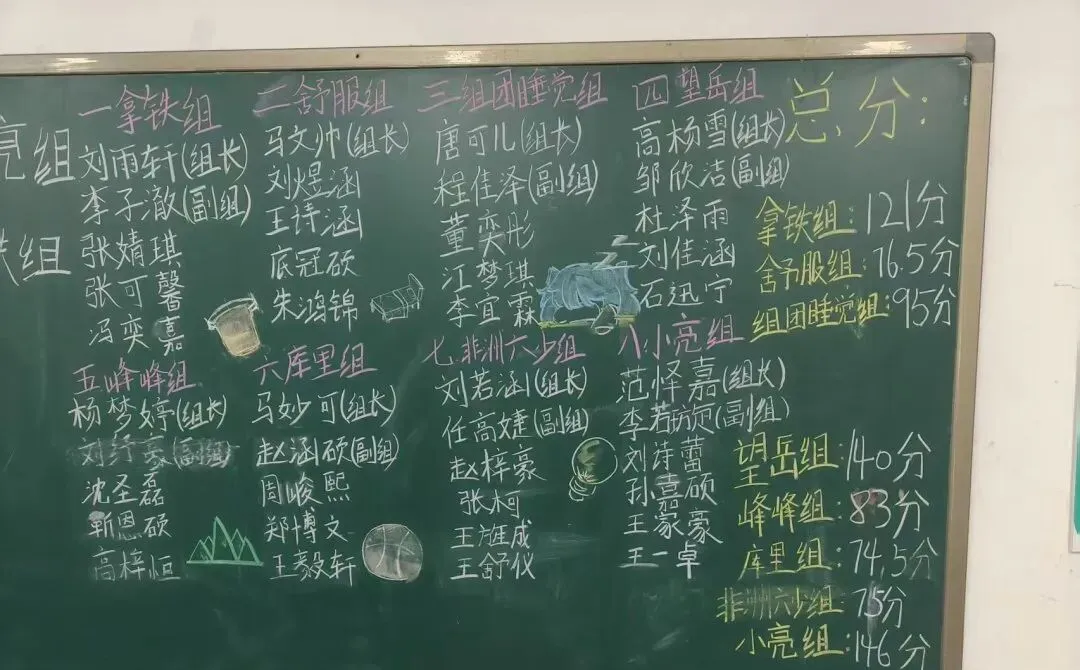 亮组
铁组
一拿铁组
刘雨轩(组长)
李子澈(副组)
张婧琪
张可馨
冯奕嘉
二舒服组
马文帅(组长)
刘煜涵
王诗涵
底冠硕
朱鸿锦
三组团睡觉组
唐可儿(组长)
程佳泽(副组)
董奕彤
江梦琪
李宜霖
四望岳组
高杨雪(组长)
邹欣洁(副组)
杜泽雨
刘佳涵
石迅宁
五峰峰组
杨梦婷(组长)
(副组)
沈圣磊
靳恩硕
高梓恒
六库里组
马妙可(组长)
赵涵硕(副组)
周峻熙
郑博文
王毅轩
七非洲六少组
刘若涵(组长)
任高婕(副组)
赵梓豪
张柯
王旌成
王舒仪
八小亮组
范怿嘉(组长)
李若(副组)
刘诗蕾
孙嘉硕
王家豪
王一卓
总分:
拿铁组:121分
舒服组:76.5分
组团睡觉组:95分
望岳组:140分
峰峰组:83分
库里组:74.5分
非洲六少组:75分
小亮组:146分